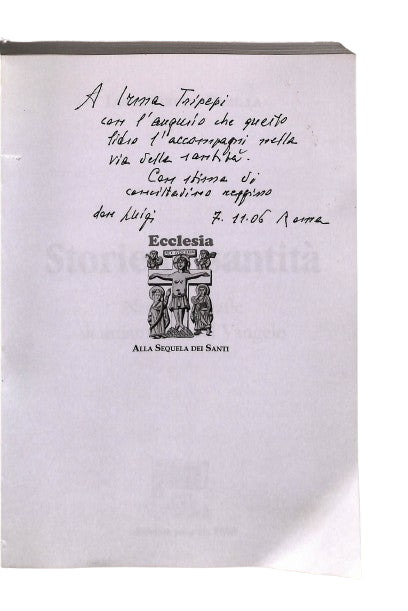 A Irma Tripepi
con l'augurio che questo
libro l'accompagni nella
via della santità.
Con stima di
concittadino reggino
don Luigi 7.11.06 Roma
Ecclesia
ALLA SEQUELA DEI SANTI